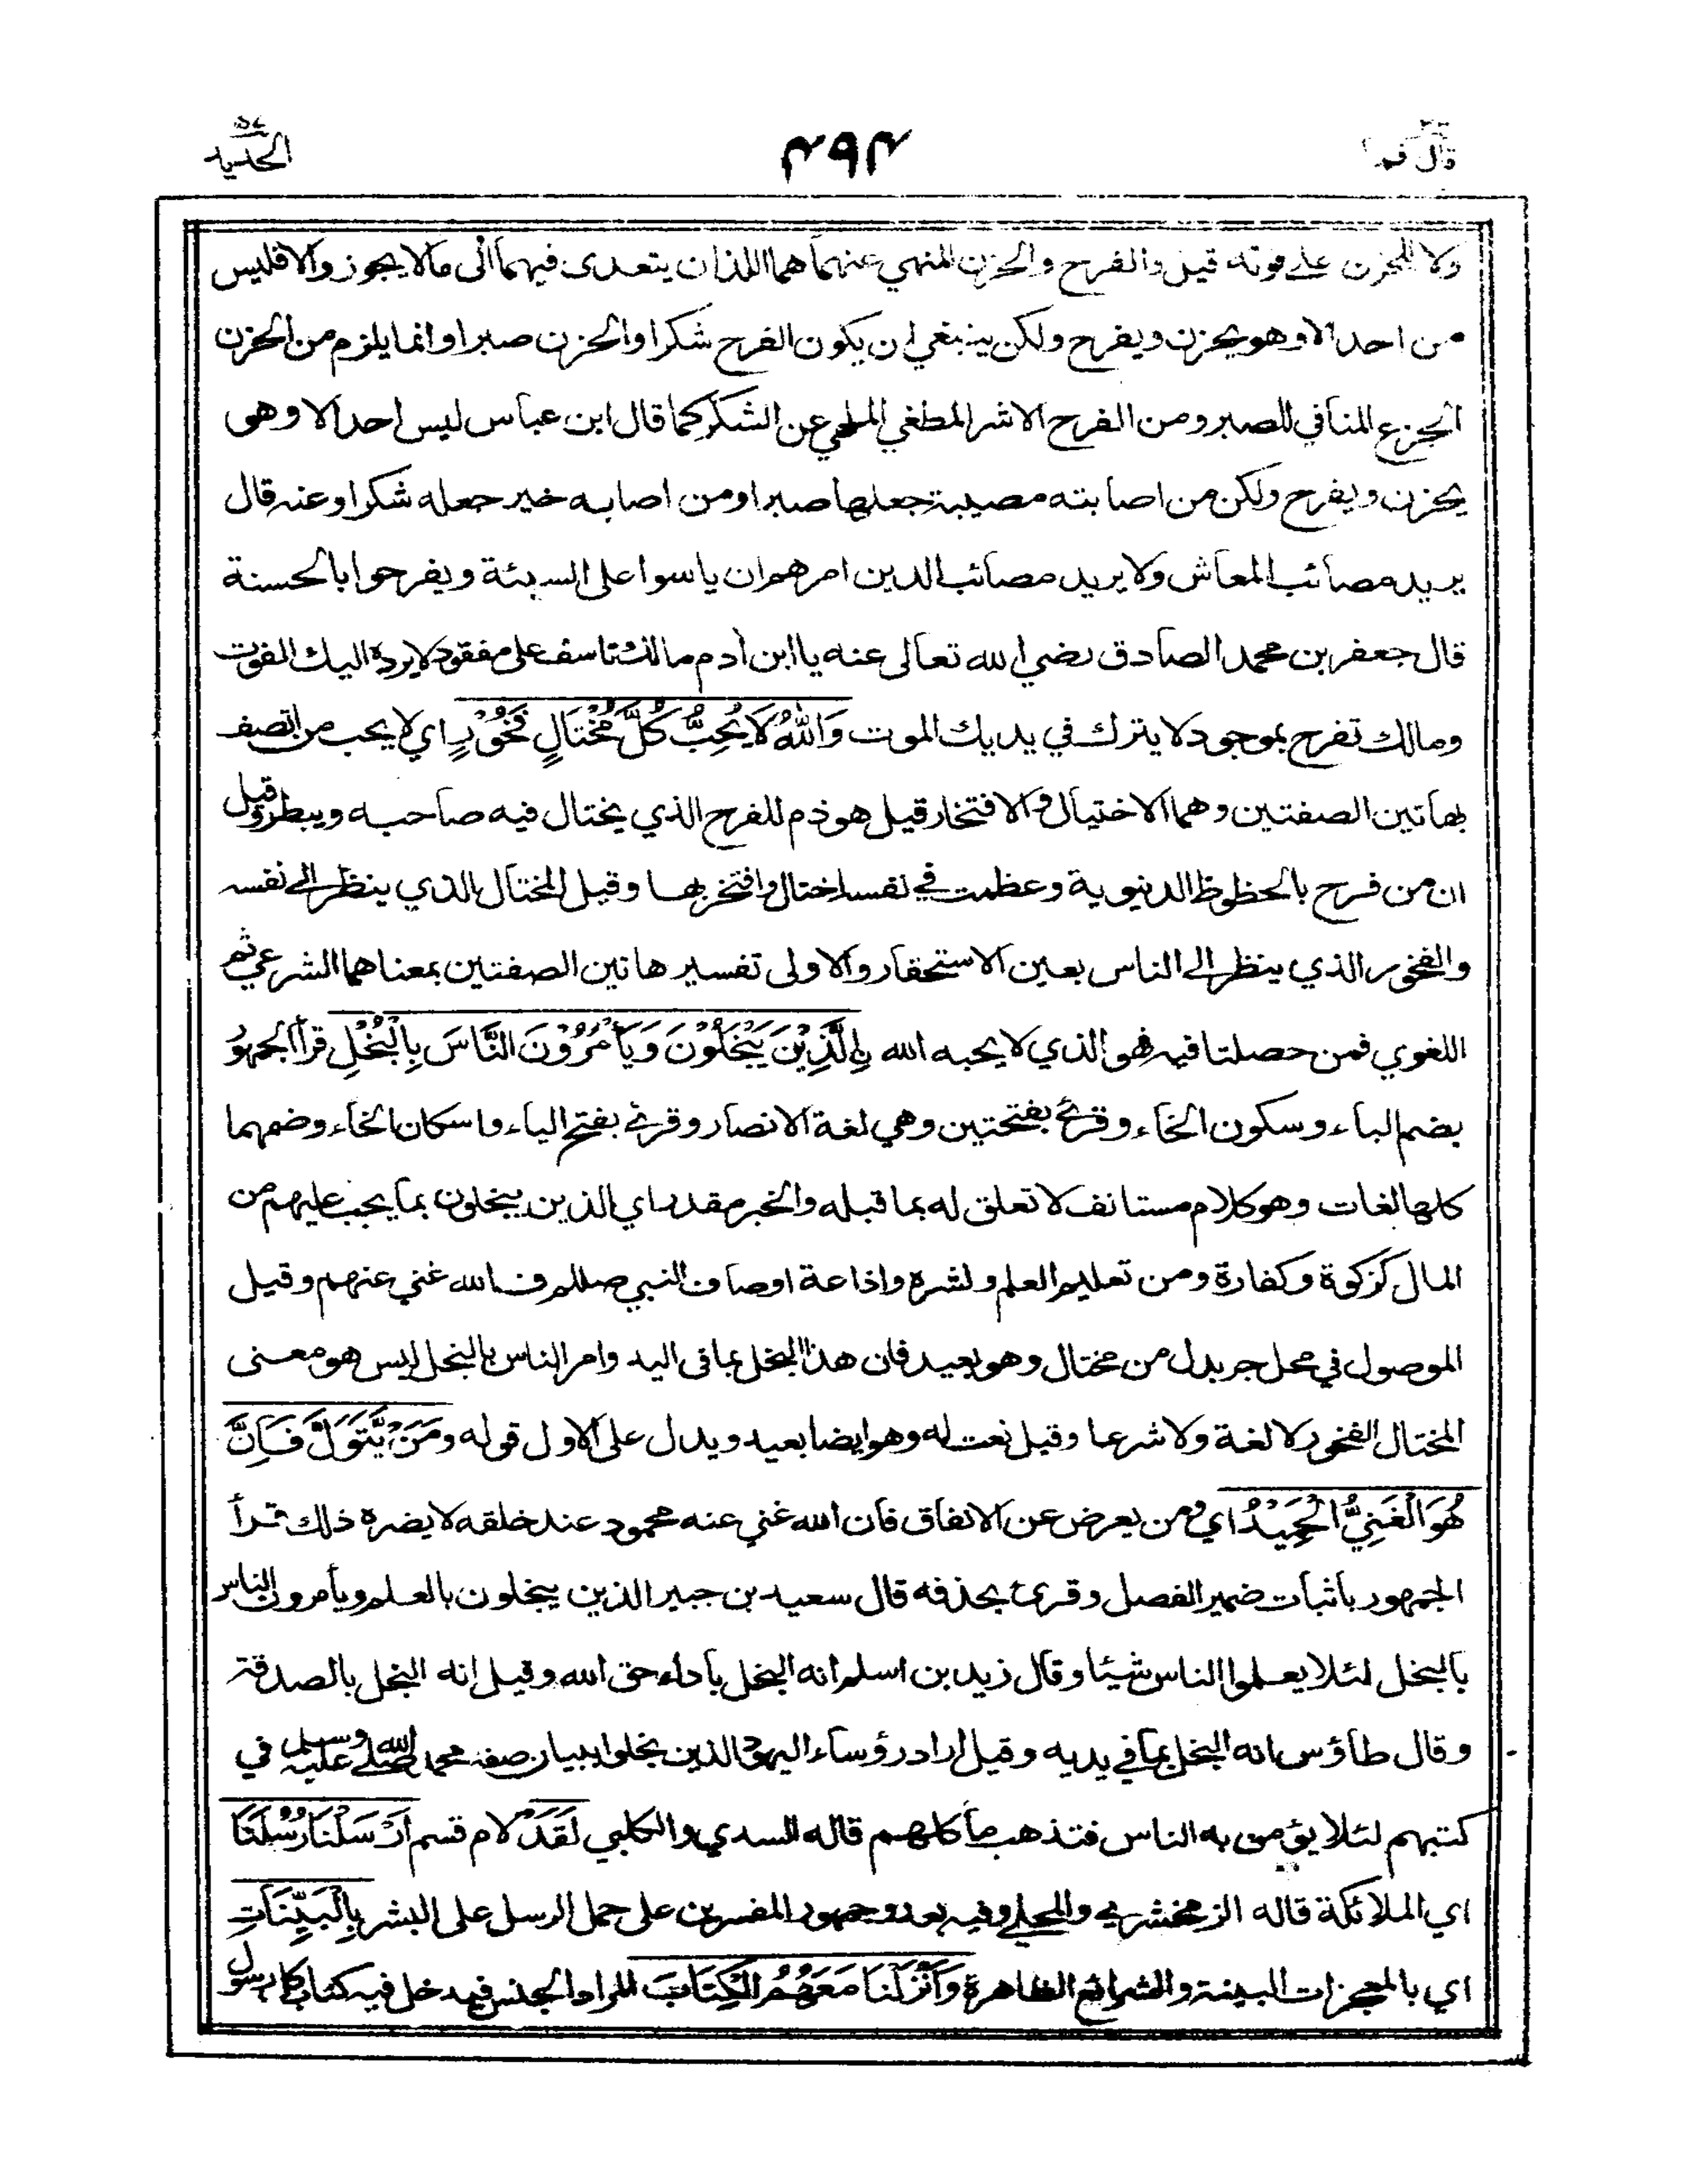 قال فما
٤٩٤
الحديد
ولا للحزن على فوته قيل والفرح والحزن المنهي عنهما هما اللذان يتعدى فيهما الى مالا يجوز والا فليس
من احد الا وهو يحزن ويفرح ولكن ينبغي ان يكون الفرح شكرا والحزن صبرا وانما يلزم من الحزن
الجزع المنافي للصبر ومن الفرح الاشر المطغي الملهي عن الشكر كما قال ابن عباس ليس احد الا وهى
يحزن ويفرح ولكن من اصابته مصيبة جعلها صبرا ومن اصابه خير جعله شكرا وعنه قال
يريد مصائب المعاش ولا يريد مصائب الدين امرهم ان ياسوا على السيئة ويفرحوا بالحسنة
قال جعفر بن محمد الصادق رضي الله تعالى عنه يا ابن أدم مالك تاسف على مفقود لا يرده اليك الفوت
ومالك تفرح بموجود لا يترك في يديك الموت وَاللّٰهُ لَا يُحِبُّ كُلَّ مُخْتَالٍ فَخُوْرٍ اي لا يحب من اتصف
بهاتين الصفتين وهما الاختيال والافتخار قيل هو ذم للفرح الذي يختال فيه صاحبه ويبطر وقيل
ان من فرح بالحظوظ الدنيوية وعظمت في نفسه اختال وافتخر بها وقيل المختال الذي ينظر الى نفسه
والفخور الذي ينظر الى الناس بعين الاستحقار والاولى تفسير هاتين الصفتين بمعناهما الشرعي ثم
اللغوي فمن حصلتا فيه فهو الذي لا يحبه الله اِلَّذِيْنَ يَبْخَلُوْنَ وَيَأْمُرُوْنَ النَّاسَ بِالْبُخْلِ قرأ الجمهو
بضم الباء وسكون الخاء وقرئ بفتحتين وهي لغة الانصار وقرئ بفتح الباء واسكان الخاء وضمهما
كلها لغات وهو كلام مستانف لا تعلق له بما قبله والخبر مقدر اي الذين يبخلون بما يجب عليهم من
المال كزكوة وكفارة ومن تعليم العلم ونشره واذاعة اوصاف النبي صللم فالله غني عنهم وقيل
الموصول في محل جر بدل من مختال وهو بعيد فان هذا البخل بما فى اليد وامر الناس بالبخل ليس هو معنى
المختال الفخور لا لغة ولا شرعا وقيل نعت له وهو ايضا بعيد ويدل على الاول قوله وَمَنْ يَّتَوَلَّ فَاِنَّ
هُوَ الْغَنِيُّ الْحَمِيْدُ اي ومن يعرض عن الانفاق فان الله غني عنه محمود عند خلقه لا يضره ذلك قرأ
الجمهور باثبات ضمير الفصل وقرئ بحذفه قال سعيد بن جبير الذين يبخلون بالعلم ويأمرون الناس
بالبخل لئلا يعلموا الناس شيئا وقال زيد بن اسلم انه البخل باداء حق الله وقيل انه البخل بالصدقة
وقال طاؤس انه البخل بما في يديه وقيل اراد رؤساء اليهود الذين بخلوا ببيان صفة محمد صلى الله عليه وسلم في
كتبهم لئلا يؤمن به الناس فتذهب مأكلهم قاله السدي والكلبي لَقَدْ لام قسم اَرْسَلْنَا رُسُلَنَا
اي الملائكة قاله الزمخشري والمحلي وفيه بعد وجمهور المفسرين على حمل الرسل على البشر بِالْبَيِّنَاتِ
اي بالمعجزات البينة والشرائع الظاهرة وَأَنْزَلْنَا مَعَهُمُ الْكِتَابَ المراد الجنس فيدخل فيه كتاب كل رسول